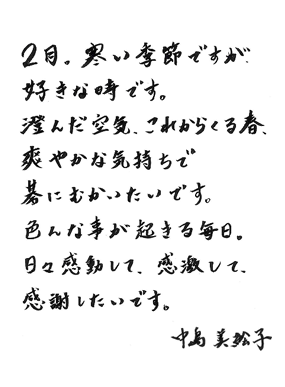 2月。寒い季節ですが
好きな時です。
澄んだ空気、これからくる春、
爽やかな気持ちで
碁にむかいたいです。
色んな事が起きる毎日。
日々感動して、感激して、
感謝したいです。
中島美絵子